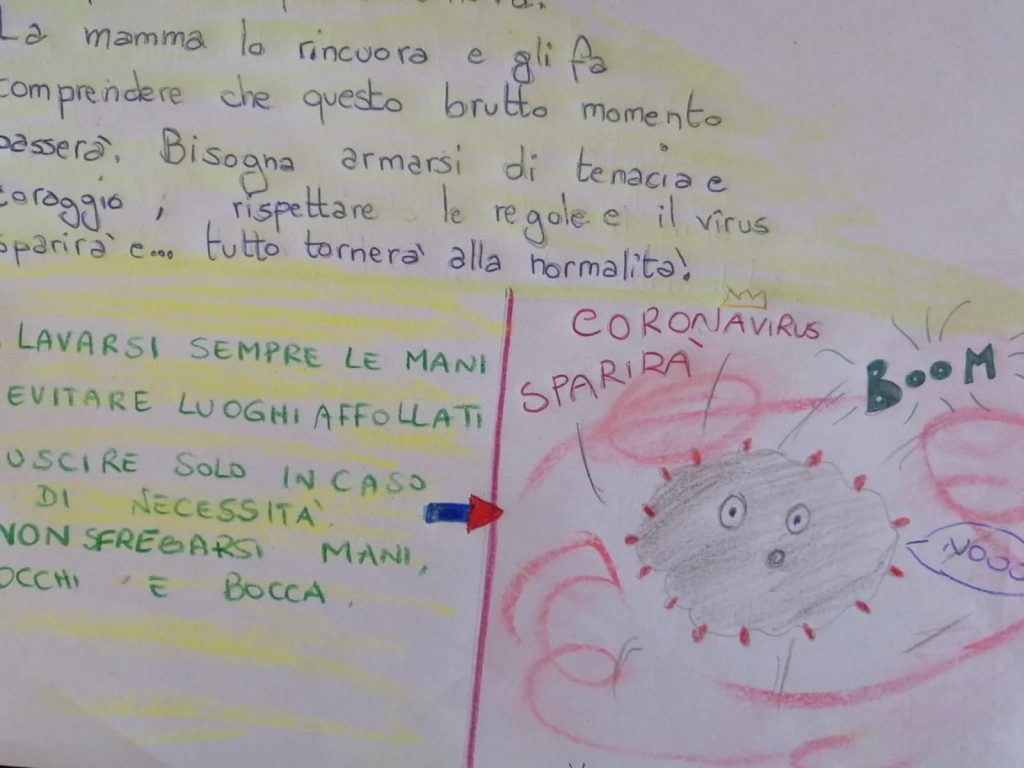 La mamma lo rincuora e gli fa
comprendere che questo brutto momento
passerà. Bisogna armarsi di tenacia e
coraggio, rispettare le regole e il virus
sparirà e... tutto tornerà alla normalità!
LAVARSI SEMPRE LE MANI
EVITARE LUOGHI AFFOLLATI
USCIRE SOLO IN CASO
DI NECESSITÀ.
NON SFREGARSI MANI,
OCCHI E BOCCA.
CORONAVIRUS
SPARIRÀ
BOOM
NOOO